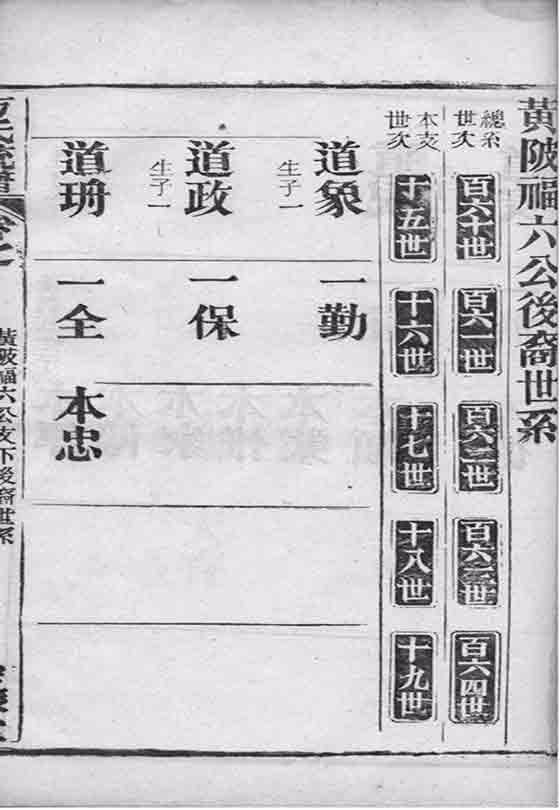 黃陂福六公後裔世系
總系世次
百六十世
百六一世
百六二世
百六三世
百六四世
本支世次
十五世
十六世
十七世
十八世
十九世
道象
生子一
一勤
道政
生子一
一保
道珘
一全
本忠
黃陂福六公支下後裔世系